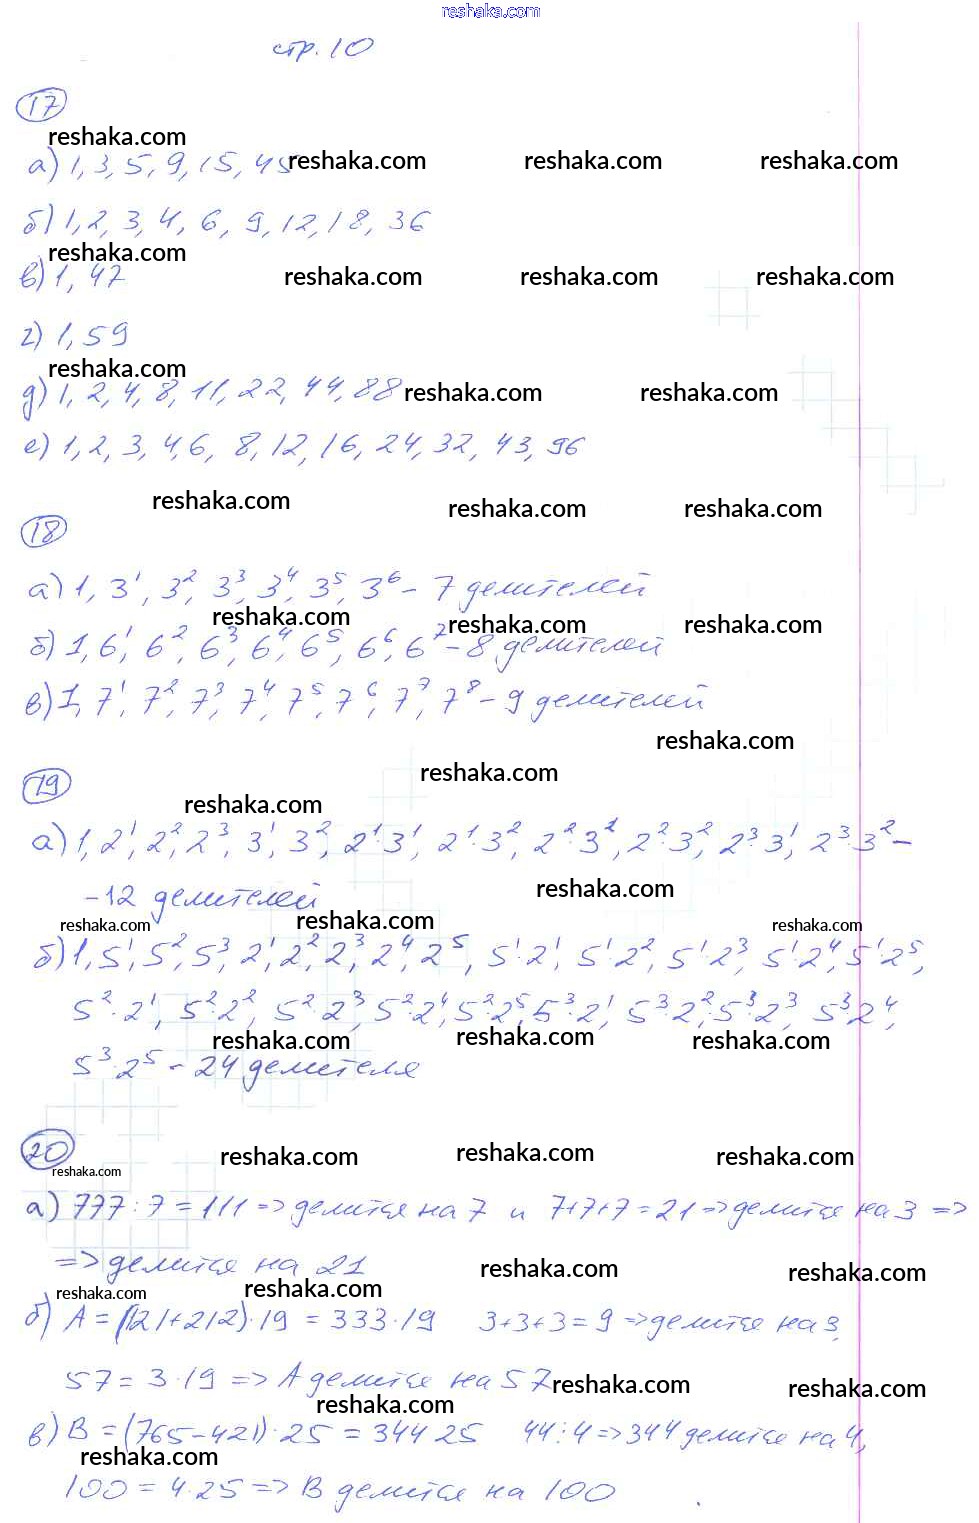 reshaka.com
стр. 10
17
reshaka.com
а) 1, 3, 5, 9, 15, 45 reshaka.com reshaka.com reshaka.com
б) 1, 2, 3, 4, 6, 9, 12, 18, 36
reshaka.com
в) 1, 47 reshaka.com reshaka.com reshaka.com
г) 1, 59
reshaka.com
д) 1, 2, 4, 8, 11, 22, 44, 88 reshaka.com reshaka.com
е) 1, 2, 3, 4, 6, 8, 12, 16, 24, 32, 43, 96
reshaka.com reshaka.com reshaka.com
18
а) 1, 3¹, 3², 3³, 3⁴, 3⁵, 3⁶ – 7 делителей
reshaka.com reshaka.com reshaka.com
б) 1, 6¹, 6², 6³, 6⁴, 6⁵, 6⁶, 6⁷ – 8 делителей
в) 1, 7¹, 7², 7³, 7⁴, 7⁵, 7⁶, 7⁷, 7⁸ – 9 делителей
reshaka.com
reshaka.com
19
reshaka.com
а) 1, 2¹, 2², 2³, 3¹, 3², 2¹·3¹, 2¹·3², 2²·3¹, 2²·3², 2³·3¹, 2³·3² –
– 12 делителей reshaka.com
reshaka.com reshaka.com reshaka.com
б) 1, 5¹, 5², 5³, 2¹, 2², 2³, 2⁴, 2⁵, 5¹·2¹, 5¹·2², 5¹·2³, 5¹·2⁴, 5¹·2⁵,
5²·2¹, 5²·2², 5²·2³, 5²·2⁴, 5²·2⁵, 5³·2¹, 5³·2², 5³·2³, 5³·2⁴,
reshaka.com reshaka.com reshaka.com
5³·2⁵ – 24 делителя
20
reshaka.com reshaka.com reshaka.com reshaka.com
а) 777 : 7 = 111 => делится на 7 и 7+7+7=21 => делится на 3 =>
=> делится на 21 reshaka.com reshaka.com
reshaka.com reshaka.com
б) А = (121+212)·19 = 333·19 3+3+3=9 => делится на 3,
57 = 3·19 => А делится на 57 reshaka.com reshaka.com
reshaka.com
в) В = (765–421)·25 = 344·25 44:4 => 344 делится на 4,
reshaka.com
100 = 4·25 => В делится на 100